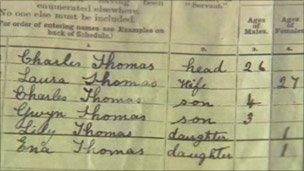 enumerated elsewhere.
No one else must be included.
For order of entering names see Examples on
back of Schedule.
"Servant."
Ages
of
Males.
Ages
of
Females.
Charles Thomas head 26
Laura Thomas Wife 27
Charles Thomas son 4
Gwyn Thomas son 3
Lily Thomas daughter 1
Ena Thomas daughter 1